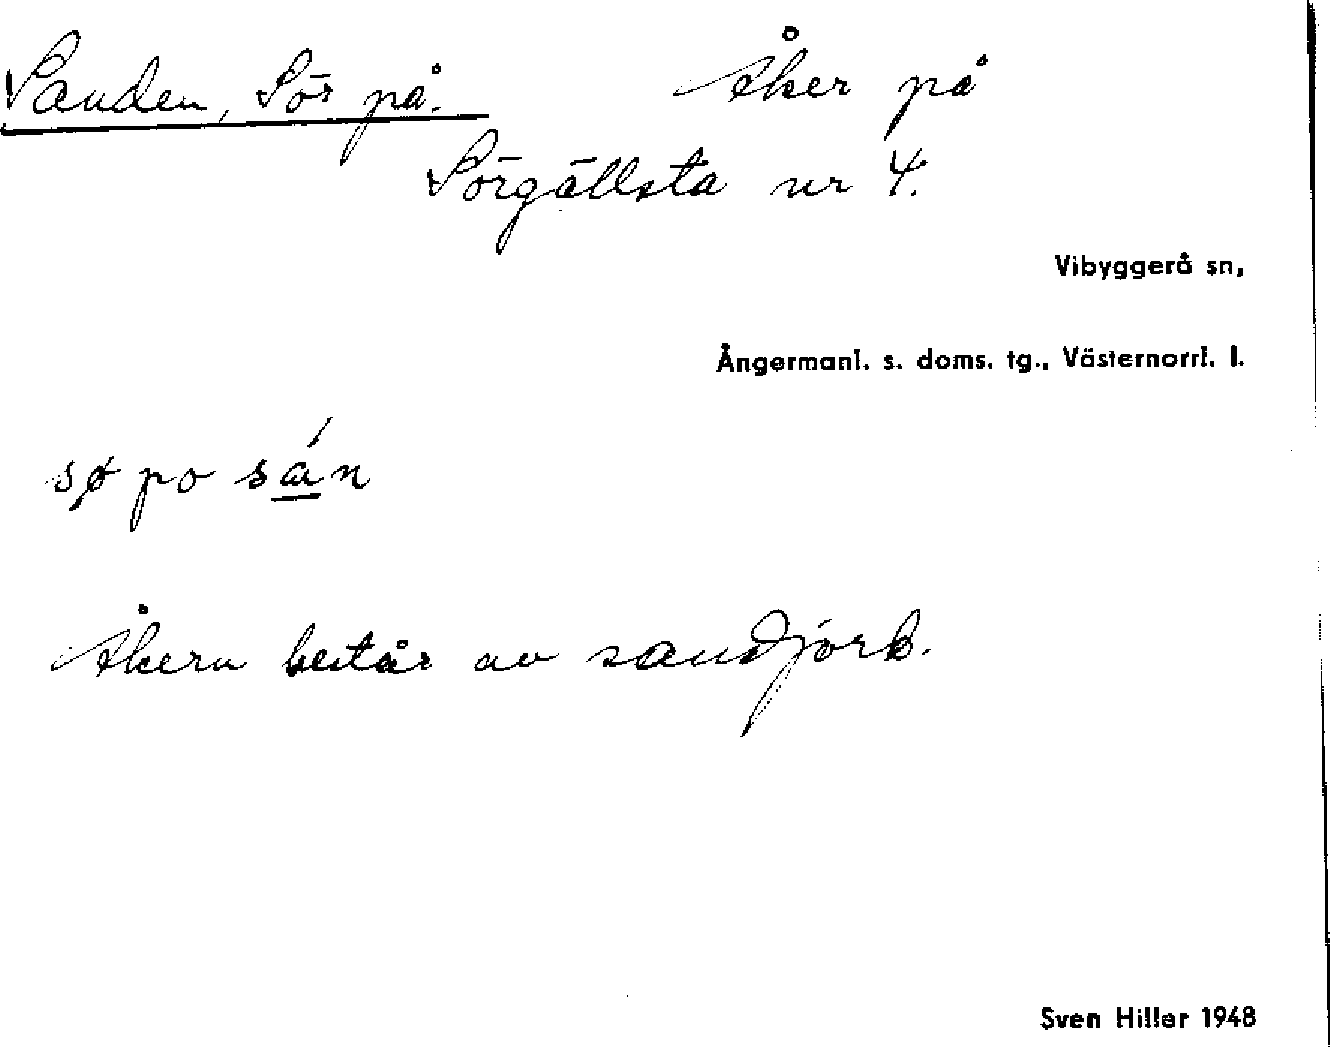 Sanden, Sör på. Åker på
Sörgällsta nr 4.
Vibyggerå sn,
Ångermanl. s. doms. tg., Västernorrl. l.
sø po sán
Åkern består av sandjord.
Sven Hiller 1948